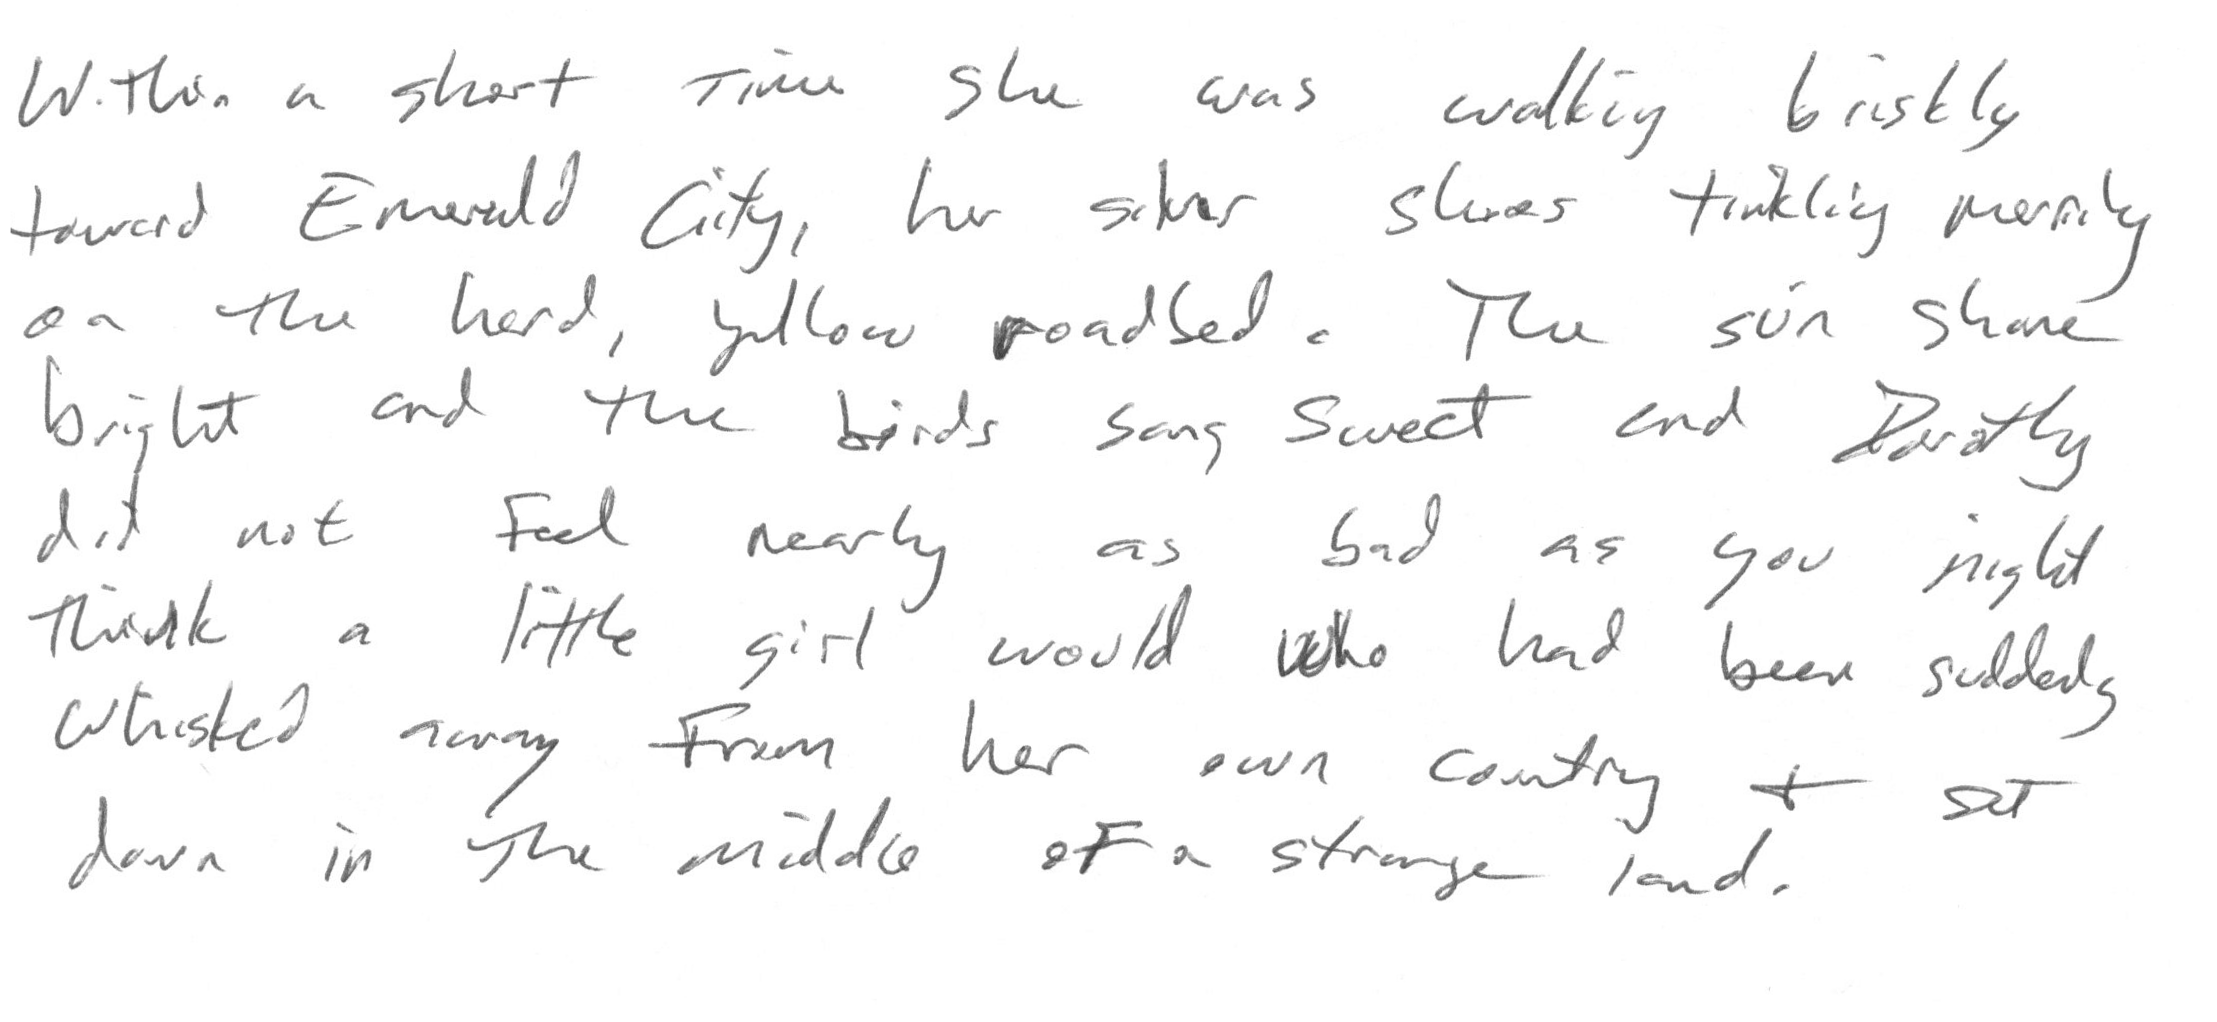 Within a short time she was walking briskly
toward Emerald City, her silver shoes tinkling merrily
on the hard, yellow roadbed. The sun shone
bright and the birds sang sweet and Dorothy
did not feel nearly as bad as you might
think a little girl would who had been suddenly
whisked away from her own country + set
down in the middle of a strange land.